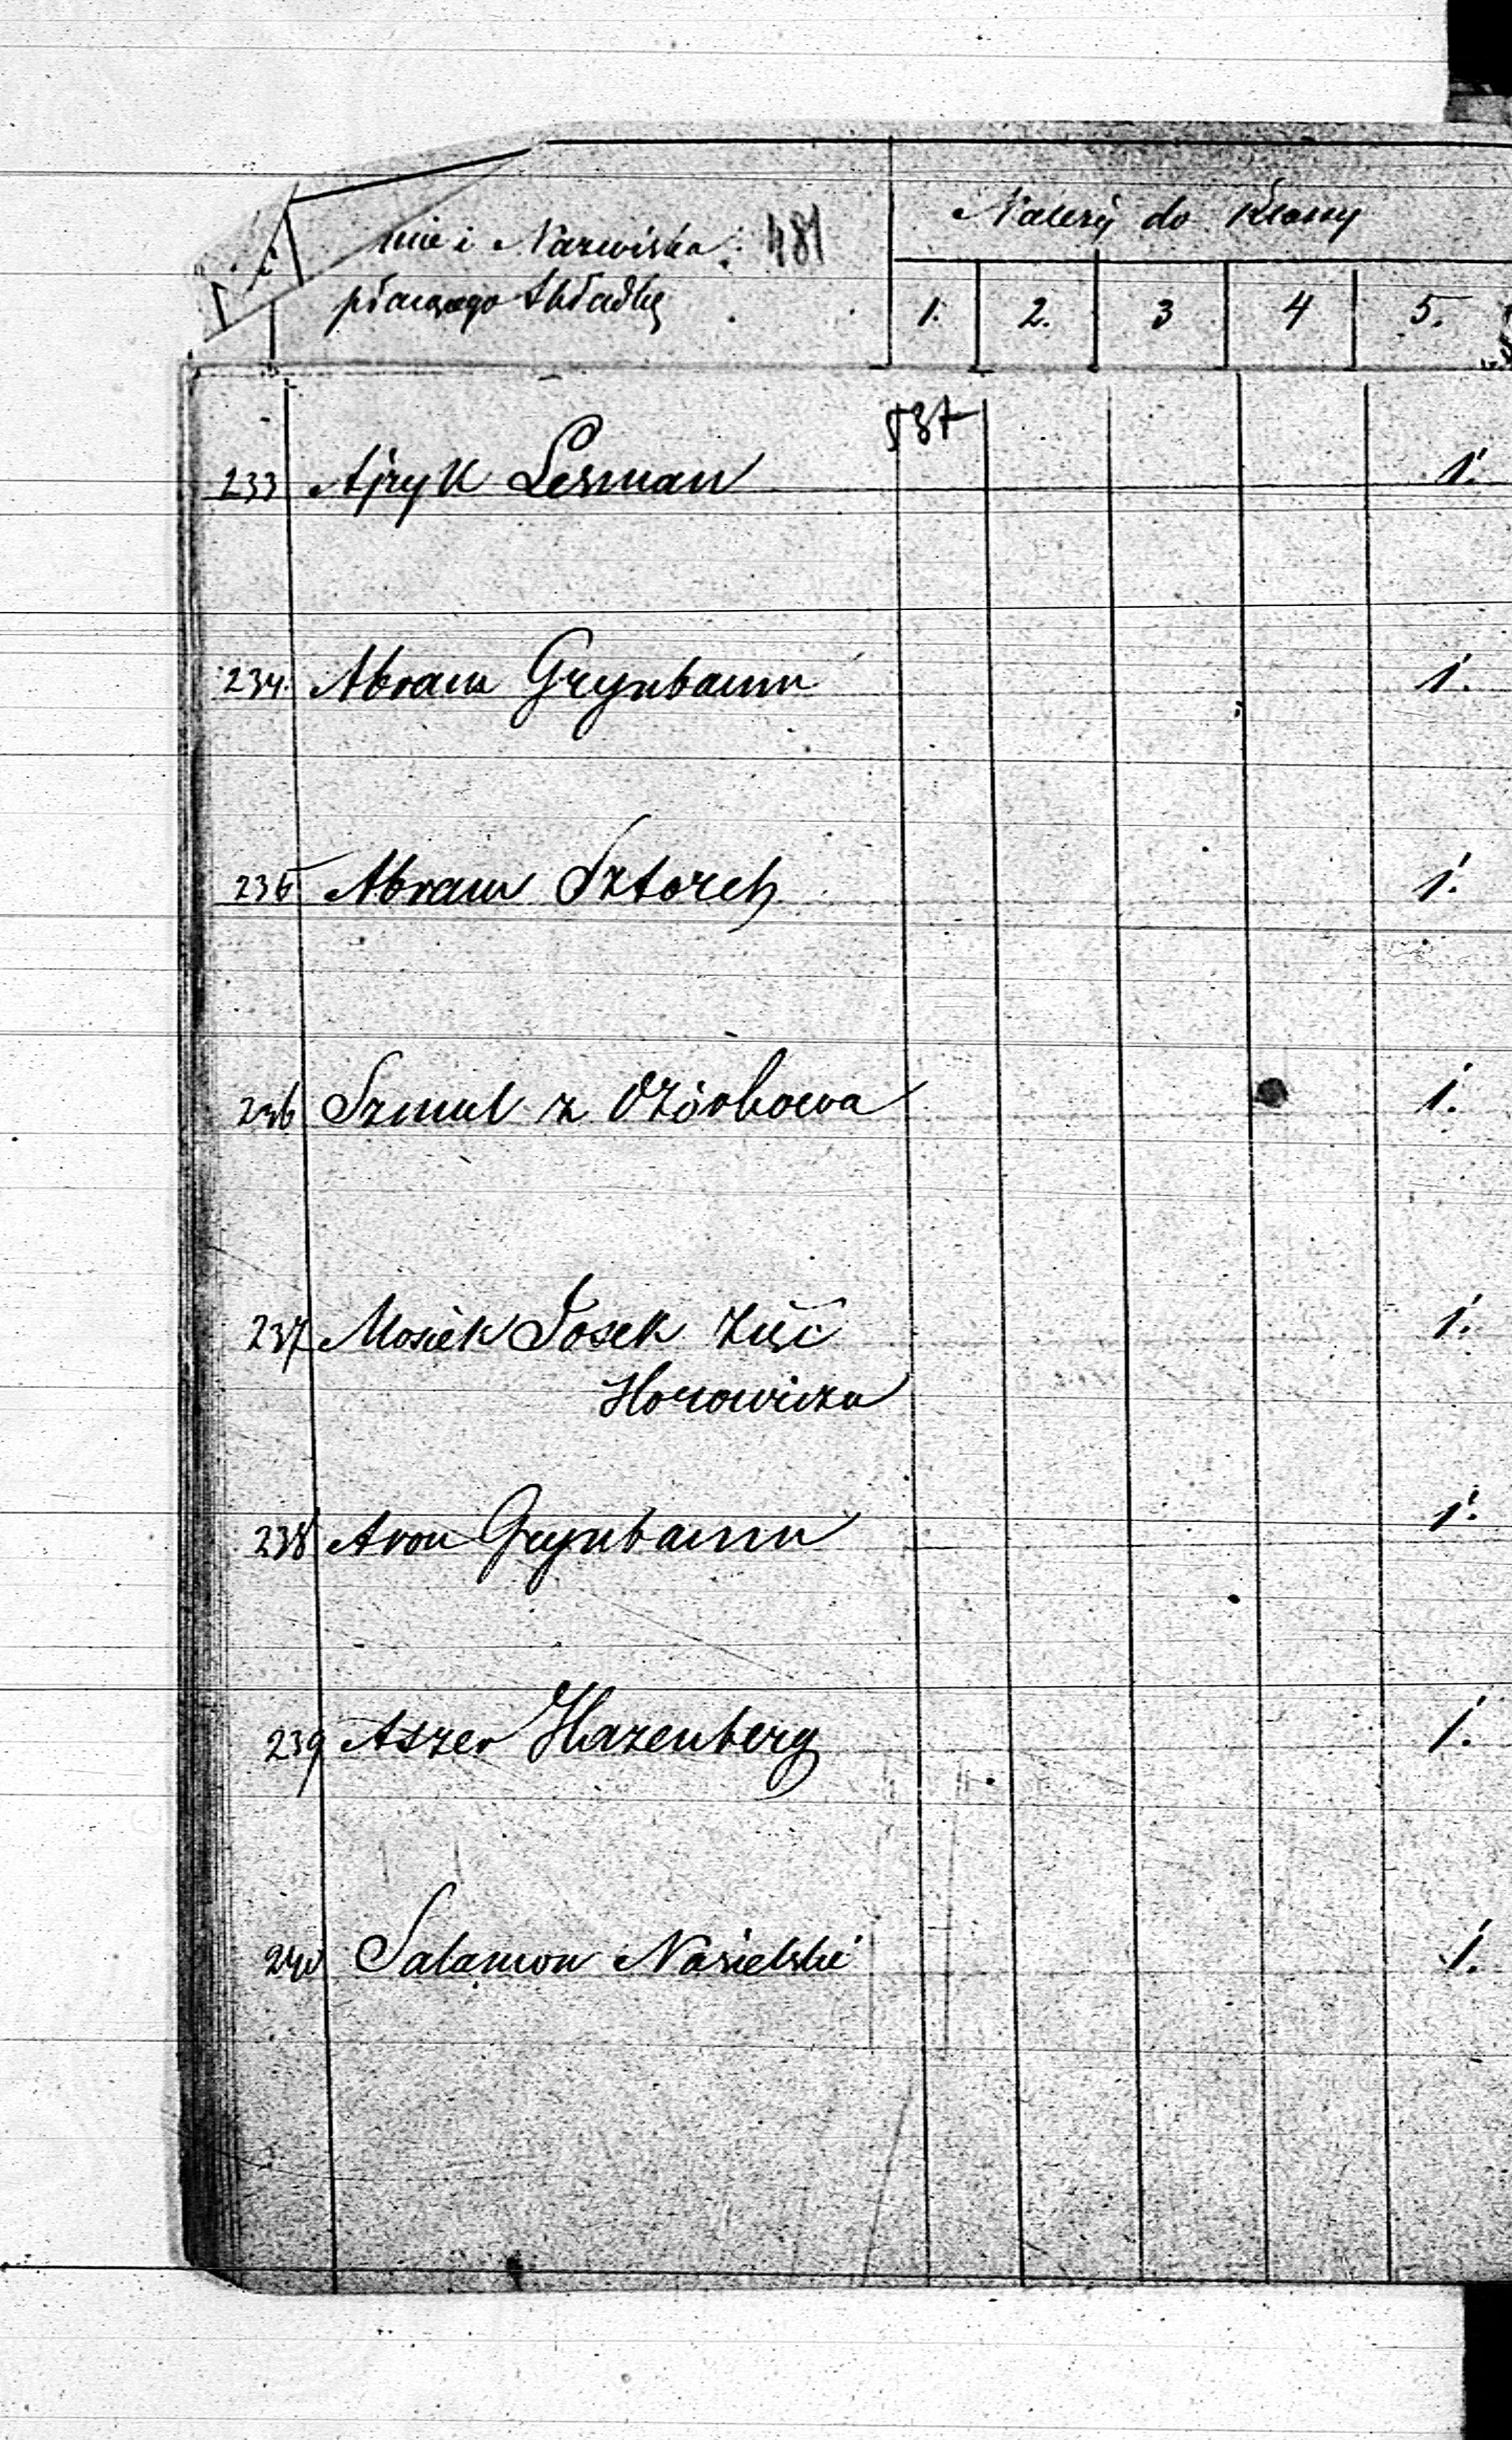 mie i Nazwisko 481
płacącego Składkę
Należy do Klassy
1. 2. 3 4 5.
537
233 Ajzyk Lesman 1.
234. Abram Grynbaum 1.
235 Abram Sztorch 1.
236 Szmul z Ozorkowa 1.
237 Mosiek Josek Zięć 1.
Horowicza
238 Aron Grynbaum 1.
239 Aszer Hazenberg 1.
240 Salamon Nasielski 1.